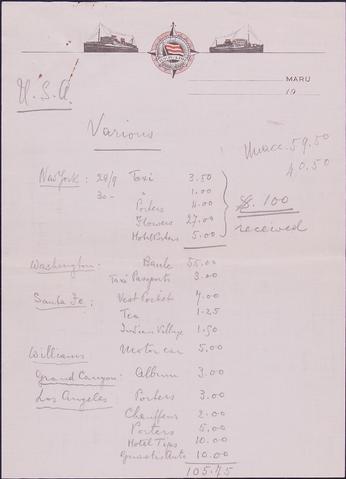 MARU
19
U.S.A.
Various
Unacc. 59.50
40.50
$. 100
received
New York: 29/9 Taxi 3.50
30- " 1.00
Porters 4.00
Flowers 27.00
Hotel Porters 5.00
Washington: Bank 55.00
Taxi Passports 3.00
Santa Fe: Vest Pocket 4.00
Tea 1.25
Indian Village 1.50
Williams Motor car 5.00
Grand Canyon: Album 3.00
Los Angeles Porters 3.00
Chauffeur 2.00
Porters 5.00
Hotel Tips 10.00
10.00
105.75